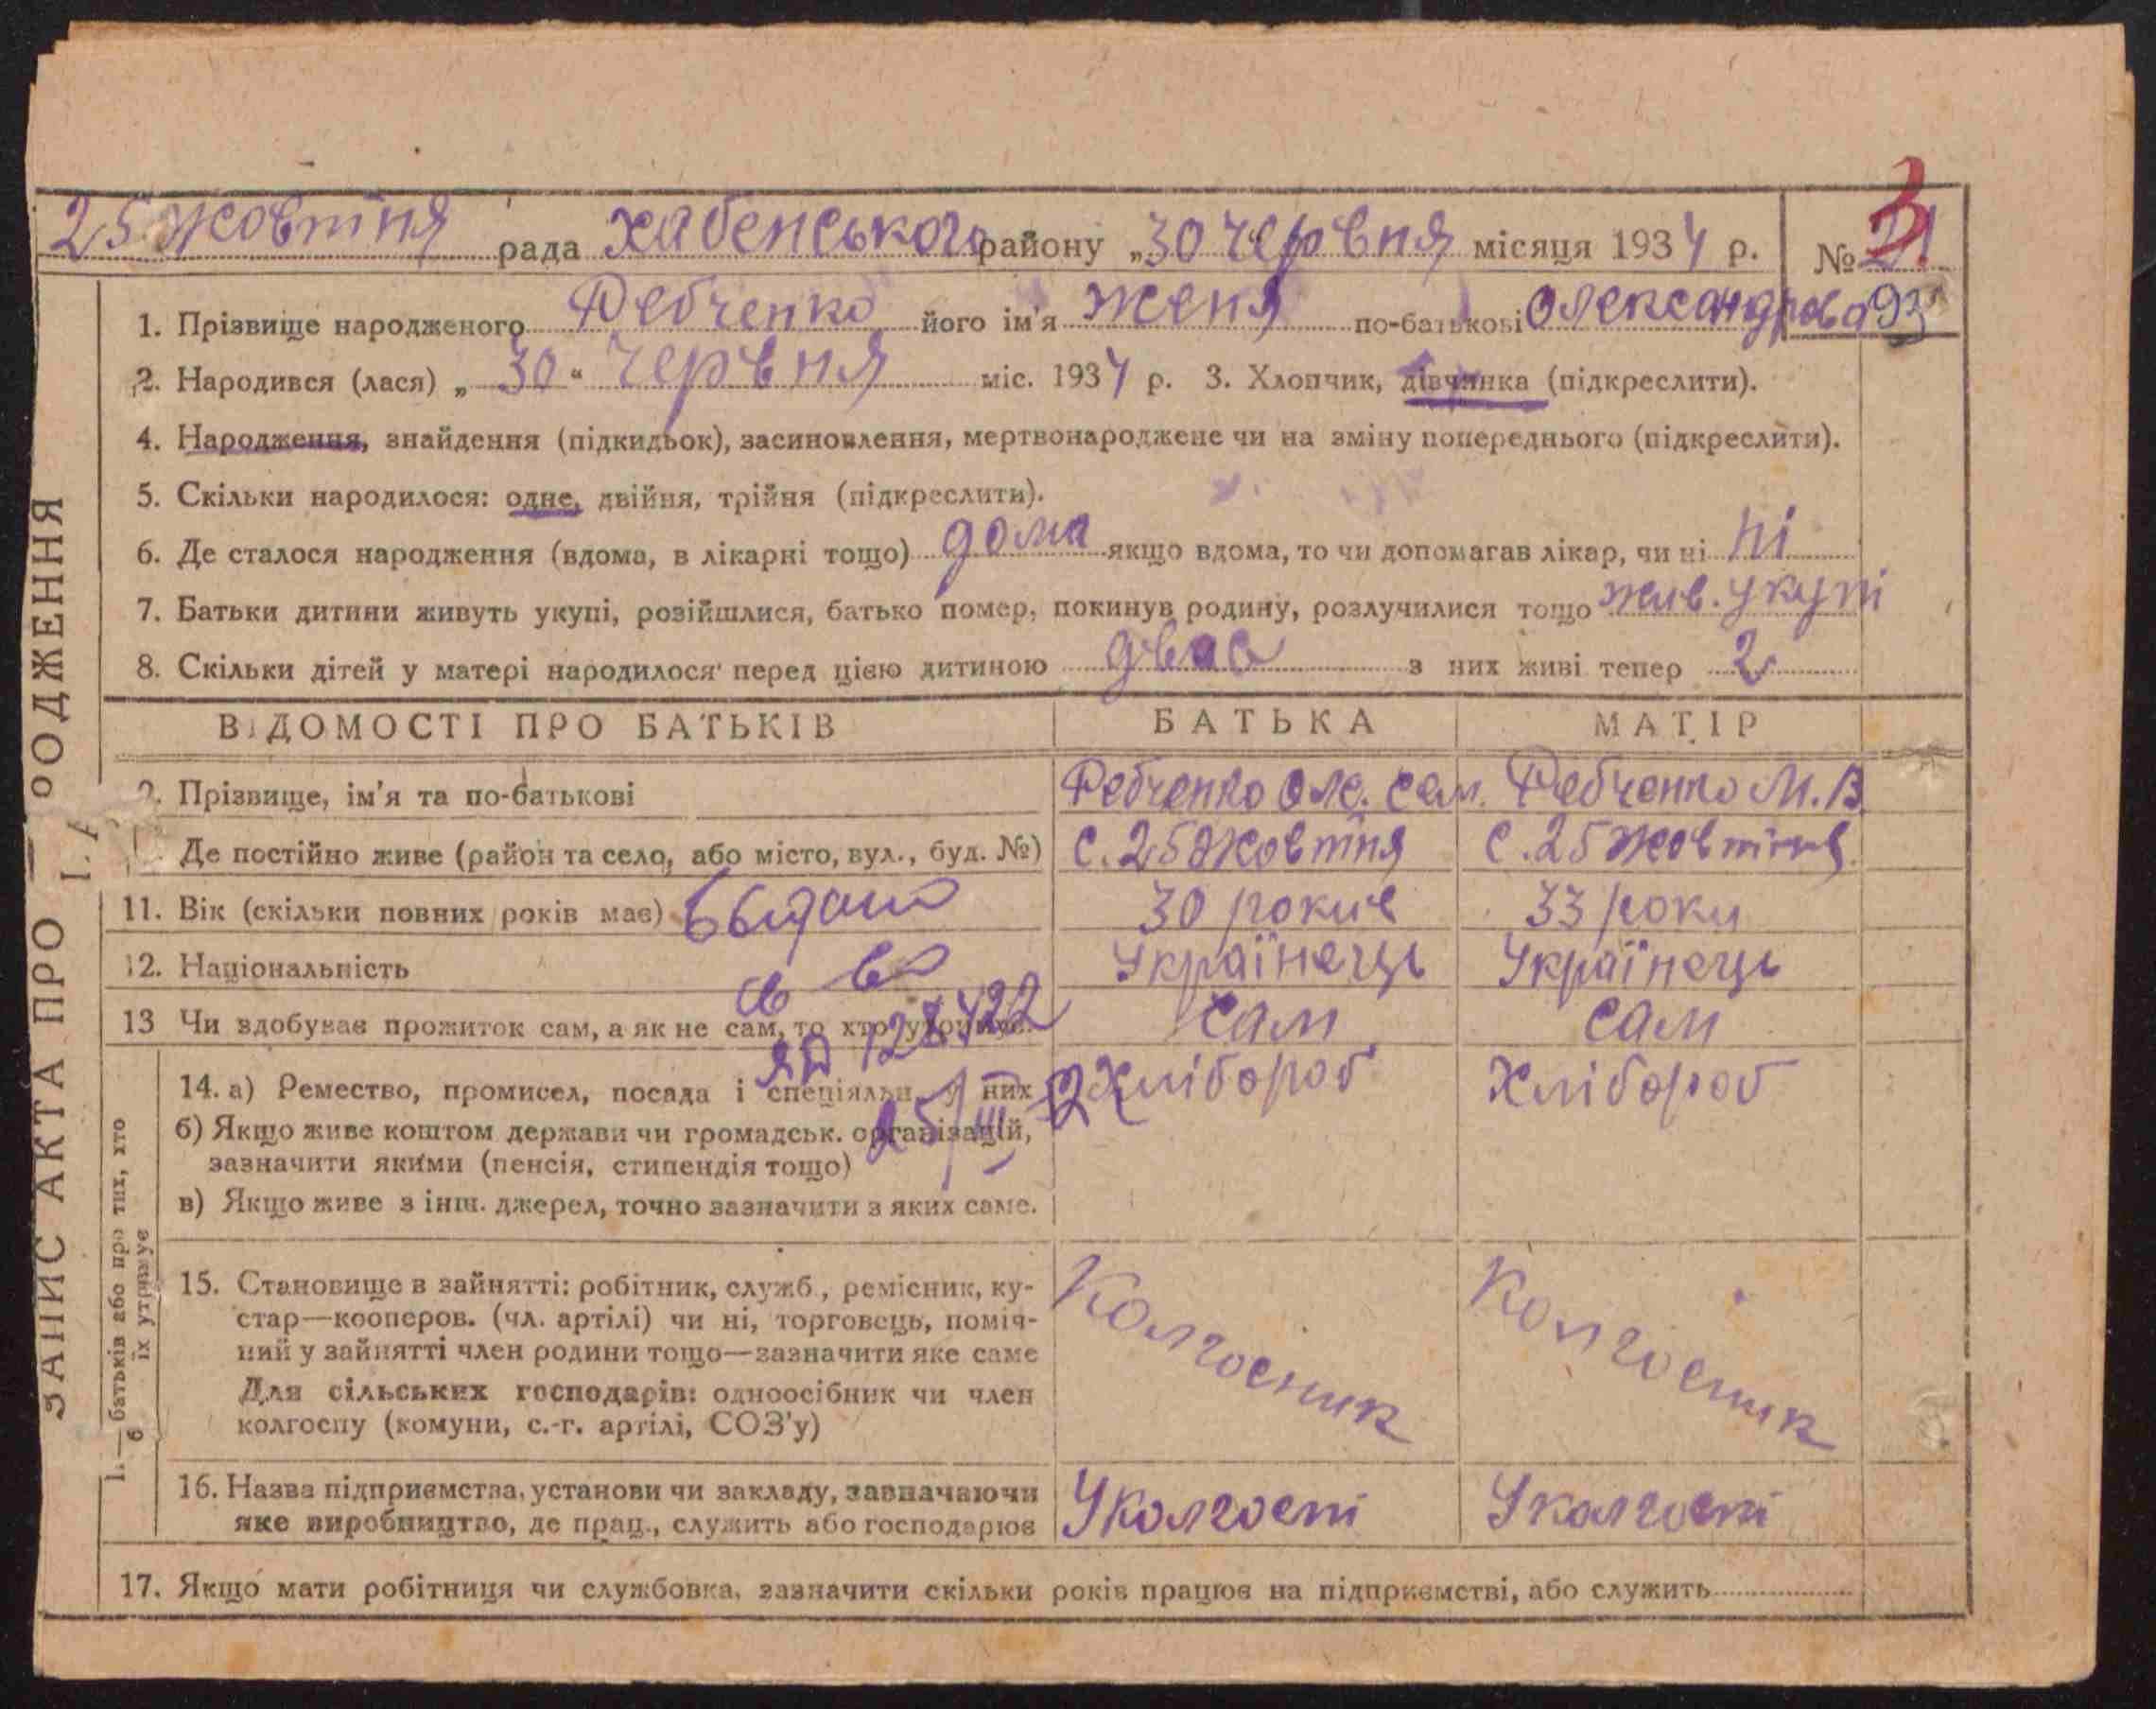 25 жовтня рада Хабенського району „30 червня місяця 1934 р. №
1. Прізвище народженого Febченко його ім'я Женя по-батькові Олександрова 93
2. Народився (лася) „30“ червня міс. 1934 р. 3. Хлопчик, дівчинка (підкреслити).
4. Народження, знайдення (підкидьок), засиновлення, мертвонароджене чи на зміну попереднього (підкреслити).
5. Скільки народилося: одне, двійня, трійня (підкреслити).
6. Де сталося народження (вдома, в лікарні тощо) дома якщо вдома, то чи допомагав лікар, чи ні ні
7. Батьки дитини живуть укупі, розійшлися, батько помер, покинув родину, розлучилися тощо жив. укупі
8. Скільки дітей у матері народилося перед цією дитиною двоє з них живі тепер 2
ВІДОМОСТІ ПРО БАТЬКІВ БАТЬКА МАТІР
9. Прізвище, ім'я та по-батькові Оле. Сем. М. В.
Де постійно живе (район та село, або місто, вул., буд. №) с. 25 жовтня с. 25 жовтня
11. Вік (скільки повних років має) 30 років 33 роки
Выдано
12. Національність Українець Українець
св во
13 Чи здобуває прожиток сам, а як не сам, то хто утримує. сам сам
128422
14. а) Ремество, промисел, посада і спеціяльн. у них Хлібороб Хлібороб
25/III
б) Якщо живе коштом держави чи громадськ. організацій,
зазначити якими (пенсія, стипендія тощо)
в) Якщо живе з інш. джерел, точно зазначити з яких саме.
15. Становище в зайнятті: робітник, служб., ремісник, ку-
стар—кооперов. (чл. артілі) чи ні, торговець, поміч-
ний у зайнятті член родини тощо—зазначити яке саме
Для сільських господарів: одноосібник чи член
колгоспу (комуни, с.-г. артілі, СОЗ'у)
Колгосник Колгосник
16. Назва підприємства, установи чи закладу, зазначаючи
яке виробництво, де прац., служить або господарює У колгоспі У колгоспі
17. Якщо мати робітниця чи службовка, зазначити скільки років працює на підприємстві, або служить
ЗАПИС АКТА ПРО РОДЖЕННЯ
І. А
І.—батьків або про тих, хто
їх утримує
б